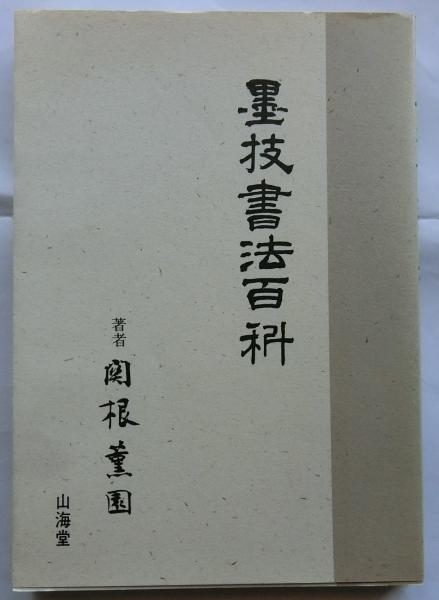 墨技書法百科
著者
関根薫園
山海堂